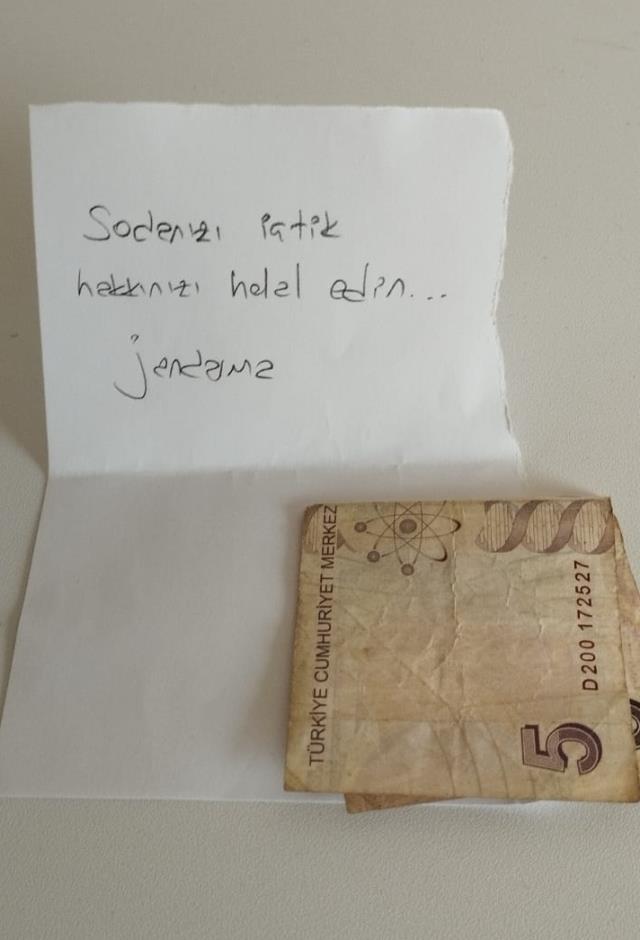 Sodanızı içtik
hakkınızı helal edin...
jandarma
TÜRKİYE CUMHURİYET MERKEZ
D200 172527
5